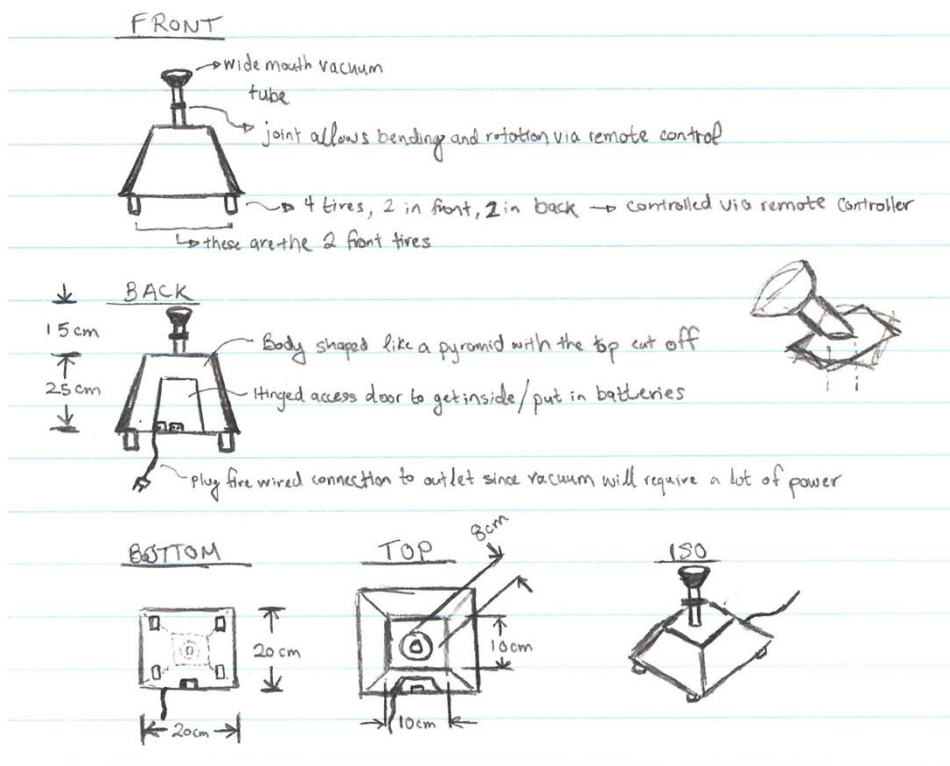 FRONT
wide mouth vacuum
tube
joint allows bending and rotation via remote control
4 tires, 2 in front, 2 in back → controlled via remote controller
these are the 2 front tires
BACK
15cm
25cm
Body shaped like a pyramid with the top cut off
Hinged access door to get inside/put in batteries
plug fire wired connection to outlet since vacuum will require a lot of power
BOTTOM
20cm
20cm
TOP
8cm
10cm
10cm
ISO